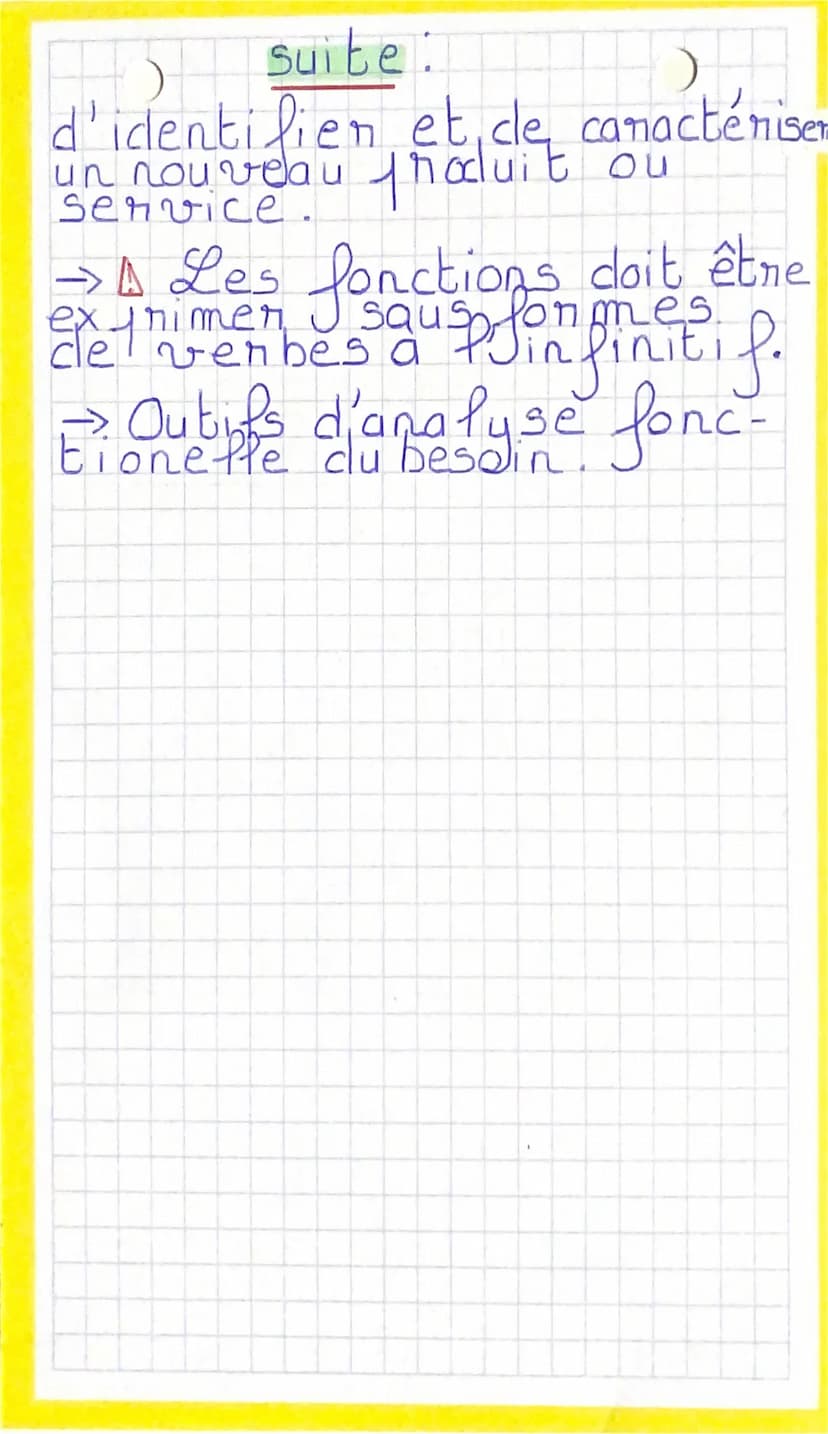 suite :
d'identifier et de caractériser
un nouveau produit ou
service.
→ ⚠ Les fonctions doit être
exprimer sous formes
de verbes a l'infinitif.
→ Outils d'analyse fonc-
tionelle du besoin.